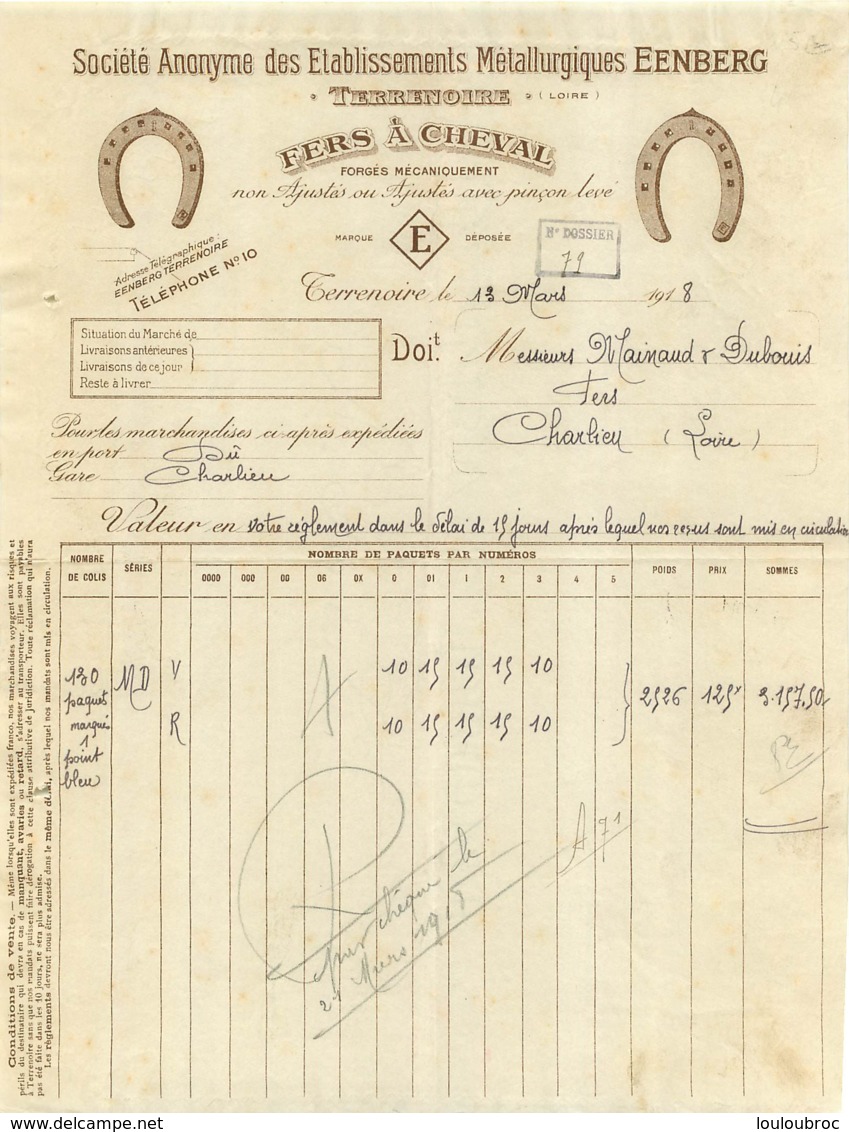 Société Anonyme des Etablissements Métallurgiques EENBERG
TERRENOIRE (LOIRE)
FERS À CHEVAL
FORGÉS MÉCANIQUEMENT
non Ajustés ou Ajustés avec pinçon levé
MARQUE E DÉPOSÉE
N° DOSSIER
79
Adresse Télégraphique :
EENBERG TERRENOIRE
TÉLÉPHONE N° 10
Terrenoire, le 13 Mars 1918
Situation du Marché de
Livraisons antérieures
Livraisons de ce jour
Reste à livrer
Doit. Messieurs Mainaud & Dubouis
Fers
Charlieu (Loire)
Pour les marchandises ci-après expédiées
en port Dû
Gare Charlieu
Valeur en votre réglement dans le délai de 15 jours après lequel nos reçus sont mis en circulation
NOMBRE DE COLIS SÉRIES NOMBRE DE PAQUETS PAR NUMÉROS POIDS PRIX SOMMES
0000 000 00 06 0X 0 01 1 2 3 4 5
130 MD V 10 15 15 15 10 2526 125 3.157,50
paquets
marqués R 10 15 15 15 10
1
point
bleu
A 71
par chèque le
21 Mars 1918
Conditions de vente. — Même lorsqu'elles sont expédiées franco, nos marchandises voyagent aux risques et
périls du destinataire qui devra en cas de manquant, avaries ou retard, s'adresser au transporteur. Elles sont payables
à Terrenoire sans que nos mandats puissent faire dérogation à cette clause attributive de juridiction. Toute réclamation qui n'aura
pas été faite dans les 10 jours, ne sera plus admise.
Les règlements devront nous être adressés dans le même délai, après lequel nos mandats sont mis en circulation.
www.delcampe.net
louloubroc